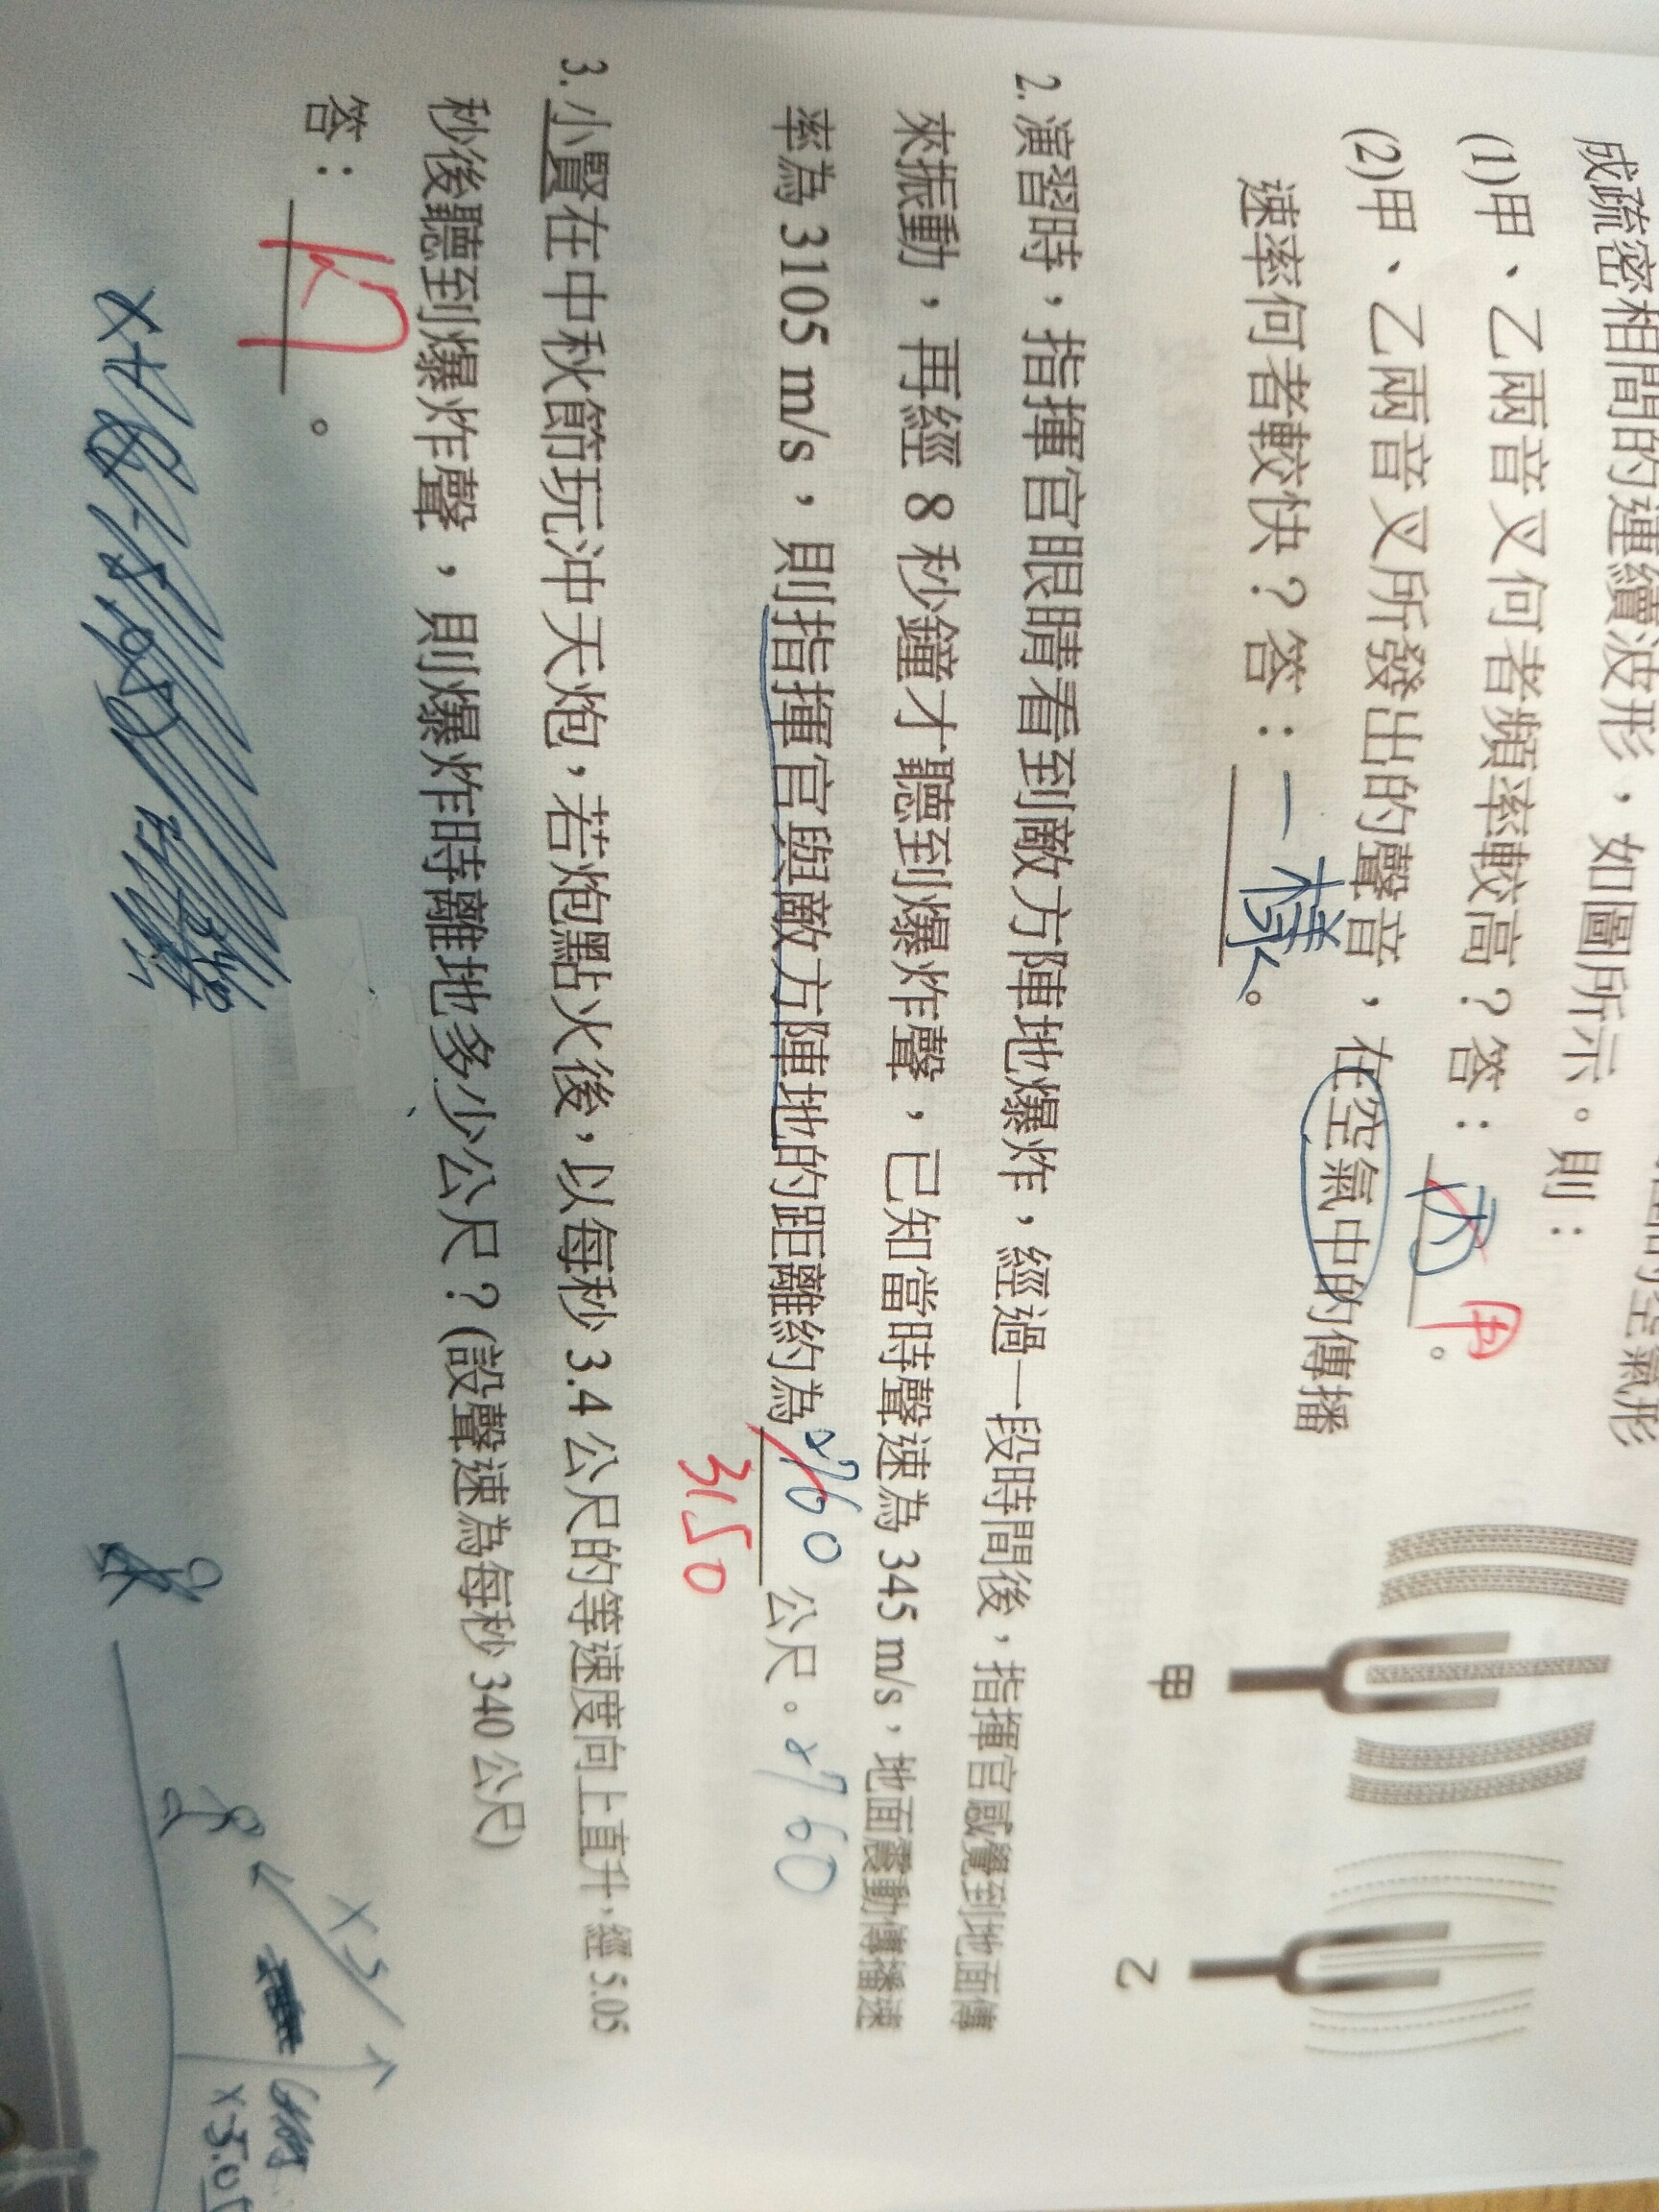 成疏密相間的連續波形，如圖所示。則：
(1)甲、乙兩音叉何者頻率較高？答：丙 甲。
(2)甲、乙兩音叉所發出的聲音，在空氣中的傳播
速率何者較快？答：一樣。
甲
乙
2. 演習時，指揮官眼睛看到敵方陣地爆炸，經過一段時間後，指揮官感覺到地面傳
來振動，再經 8 秒鐘才聽到爆炸聲，已知當時聲速為 345 m/s，地面震動傳播速
率為 3105 m/s，則指揮官與敵方陣地的距離約為 2760 公尺。2760
3150
3. 小賢在中秋節玩沖天炮，若炮點火後，以每秒 3.4 公尺的等速度向上直升，經 5.05
秒後聽到爆炸聲，則爆炸時離地多少公尺？(設聲速為每秒 340 公尺)
答：17。